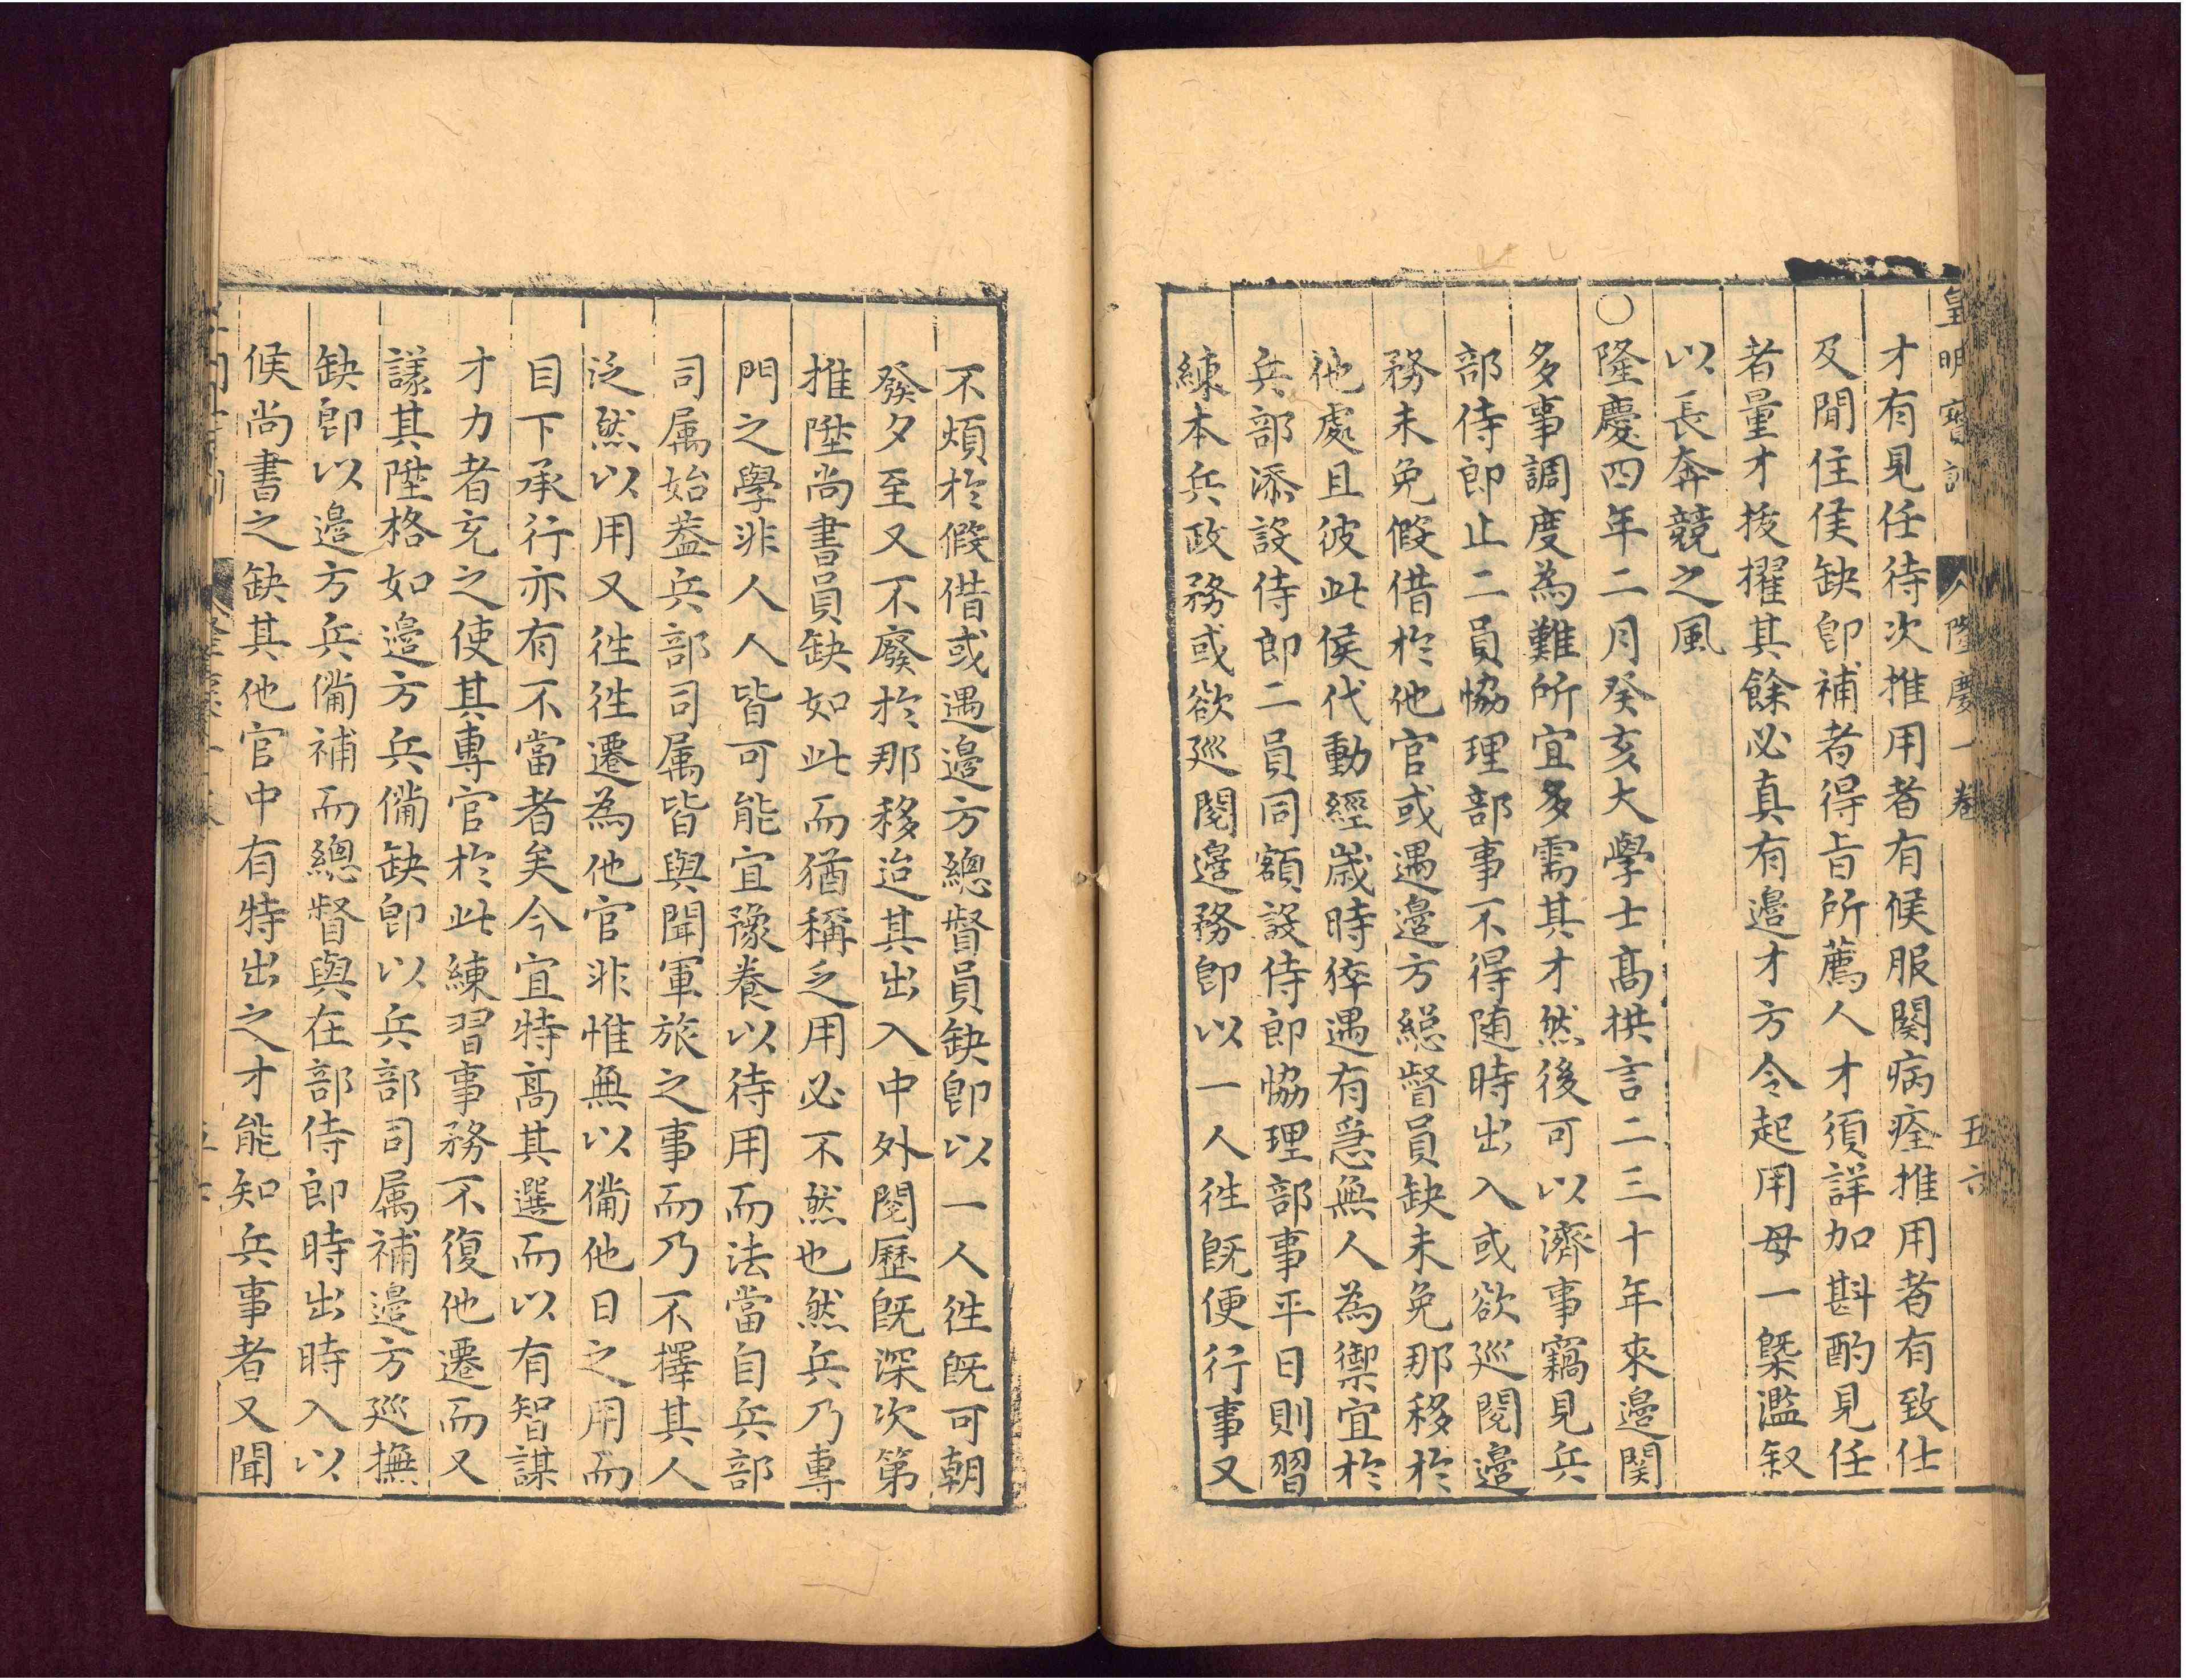 皇明寶訓 隆慶一卷 五六
才有見任待次推用者有候服闋病痊推用者有致仕
及閒住候缺卽補者得旨所薦人才須詳加斟酌見任
者量才拔擢其餘必真有邉才方令起用毋一槩濫叙
以長奔競之風
○隆慶四年二月癸亥大學士髙拱言二三十年來邉関
多事調度為難所宜多需其才然後可以濟事竊見兵
部侍郎止二員恊理部事不得随時出入或欲廵閱邉
務未免假借於他官或遇邉方緫督員缺未免那移於
他處且彼此候代動經嵗時猝遇有急無人為禦宜於
兵部添設侍郎二員同額設侍郎恊理部事平日則習
練本兵政務或欲廵閱邉務卽以一人徃旣便行事又
不煩於假借或遇邉方總督員缺卽以一人徃旣可朝
發夕至又不廢於那移迨其出入中外閱歷旣深次第
推陞尚書員缺如此而猶稱乏用必不然也然兵乃專
門之學非人人皆可能宜豫養以待用而法當自兵部
司属始葢兵部司属皆與聞軍旅之事而乃不擇其人
泛然以用又徃徃遷為他官非惟無以備他日之用而
目下承行亦有不當者矣今宜特髙其選而以有智謀
才力者充之使其專官於此練習事務不復他遷而又
議其陞格如邉方兵備缺卽以兵部司属補邉方廵撫
缺卽以邉方兵備補而總督與在部侍郎時出時入以
候尚書之缺其他官中有特出之才能知兵事者又聞